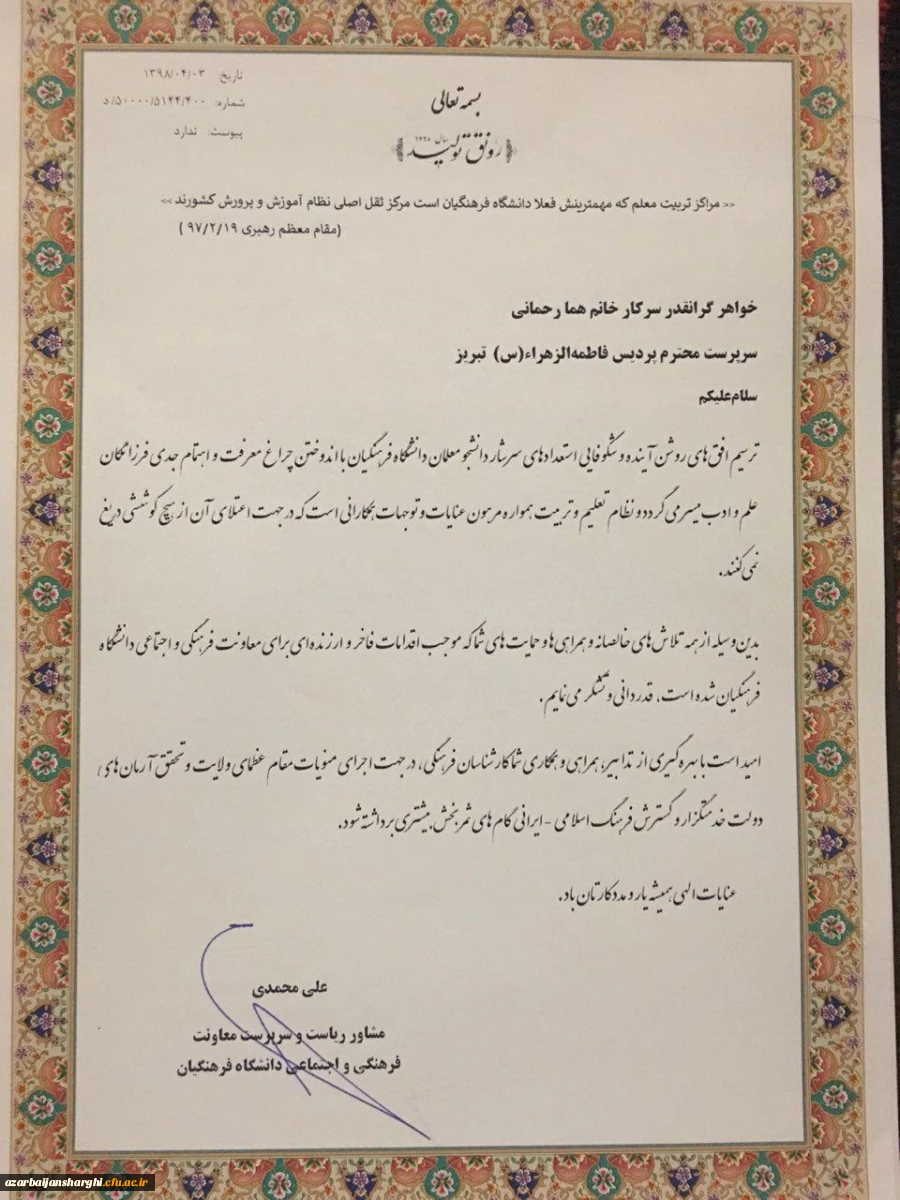 بسمه تعالی
تاریخ ۱۳۹۸/۰۴/۰۳
شماره: ۵۰۰۰۰/۵۱۴۴/۴۰۰/د
پیوست: ندارد
سال ۱۳۹۸
رونق تولید
<< مراکز تربیت معلم که مهمترینش فعلا دانشگاه فرهنگیان است مرکز ثقل اصلی نظام آموزش و پرورش کشورند >>
(مقام معظم رهبری ۹۷/۲/۱۹ )
خواهر گرانقدر سرکار خانم هما رحمانی
سرپرست محترم پردیس فاطمه‌الزهراء(س) تبریز
سلام‌علیکم
ترسیم افق‌های روشن آینده و شکوفایی استعدادهای سرشار دانشجو معلمان دانشگاه فرهنگیان با اندوختن چراغ معرفت و اهتمام جدی فرزانگان
علم و ادب میسر می گردد و نظام تعلیم و تربیت همواره مرهون عنایات و توجهات همکارانی است که در جهت اعتلای آن از هیچ کوششی دریغ
نمی کنند.
بدین وسیله از همه تلاش‌های خالصانه و همراهی ها و حمایت های شما که موجب اقدامات فاخر و ارزنده‌ای برای معاونت فرهنگی و اجتماعی دانشگاه
فرهنگیان شده است، قدردانی و تشکر می نمایم .
امید است با بهره گیری از تدابیر، همراهی و همکاری شما کارشناسان فرهنگی، در جهت اجرای منویات مقام عظمای ولایت و تحقق آرمان‌های
دولت خدمتگزار و گسترش فرهنگ اسلامی - ایرانی گام های ثمربخش بیشتری برداشته شود.
عنایات الهی همیشه یار و مددکارتان باد.
علی محمدی
مشاور ریاست و سرپرست معاونت
فرهنگی و اجتماعی دانشگاه فرهنگیان
azarbaijansharghi.cfu.ac.ir